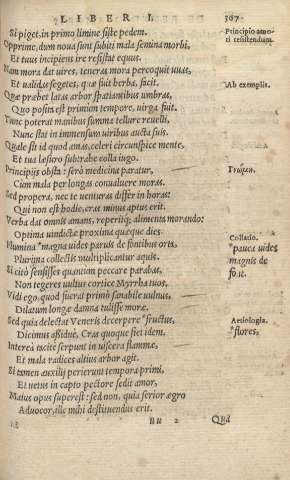 LIBER I. 307
Si piget, in primo limine siste pedem.
Principio amo-
ri resistendum.
Opprime, dum noua sunt subiti mala semina morbi,
Et tuus incipiens ire resistat equus.
Nam mora dat uires, teneras mora percoquit uuas,
Ab exemplis.
Et ualidas segetes, quæ fuit herba, facit.
Quæ præbet latas arbor spatiantibus umbras,
Quo posita est primum tempore, uirga fuit.
Tunc poterat manibus summa tellure reuelli,
Nunc stat in immensum uiribus aucta suis.
Quale sit id quod amas, celeri circunspice mente,
Et tua læsuro subtrahe colla iugo.
Principijs obsta: serò medicina paratur,
Cùm mala per longas conualuere moras.
Sed propera, nec te uenturas differ in horas:
Qui non est hodie, cras minus aptus erit.
Verba dat omnis amans, reperitq; alimenta morando:
Optima uindictæ proxima quæque dies.
Collatio.
Flumina *magna uides paruis de fontibus orta,
*pauca uides
magnis de
fo.u.
Plurima collectis multiplicantur aquis.
Si citò sensisses quantum peccare parabas,
Non tegeres uultus cortice Myrrha tuos.
Vidi ego, quod fuerat primò sanabile uulnus,
Dilatum longæ damna tulisse moræ.
Sed quia delectat Veneris decerpere *fructus,
Aetiologia.
*flores,
Dicimus aßiduè, Cras quoque fiet idem.
Interea tacitæ serpunt in uiscera flammæ,
Et mala radices altius arbor agit.
Si tamen auxilij perierunt tempora primi,
Et uetus in capto pectore sedit amor,
Maius opus superest: sed non, quia serior ægro
Aduocor, ille mihi destituendus erit.
2 Quá